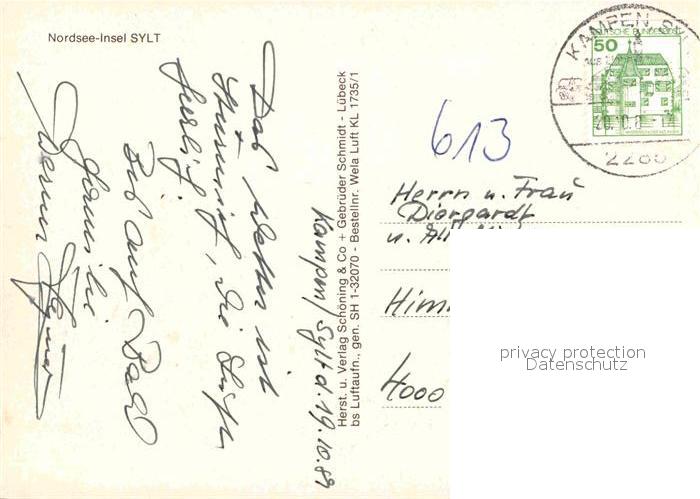 Nordsee-Insel SYLT
Kampen/Sylt d. 19.10.81
Das Wetter ist
stürmisch, die Luft
herrlich.
Bis auf Bald
Familie
Werner
Herst. u. Verlag Schöning & Co + Gebrüder Schmidt - Lübeck
bs Luftaufn., gen. SH 1-32070 - Bestellnr. Wela Luft KL 1735/1
613
DEUTSCHE BUNDESPOST
50
KAMPEN
2285
Herrn u. Frau
Diergardt
u.
4000
privacy protection
Datenschutz